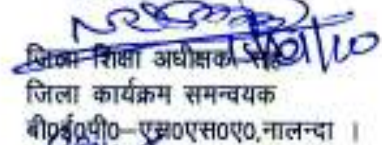 जिला शिक्षा अधीक्षक सह
जिला कार्यक्रम समन्वयक
बी0ई0पी0–एस0एस0ए0,नालन्दा ।